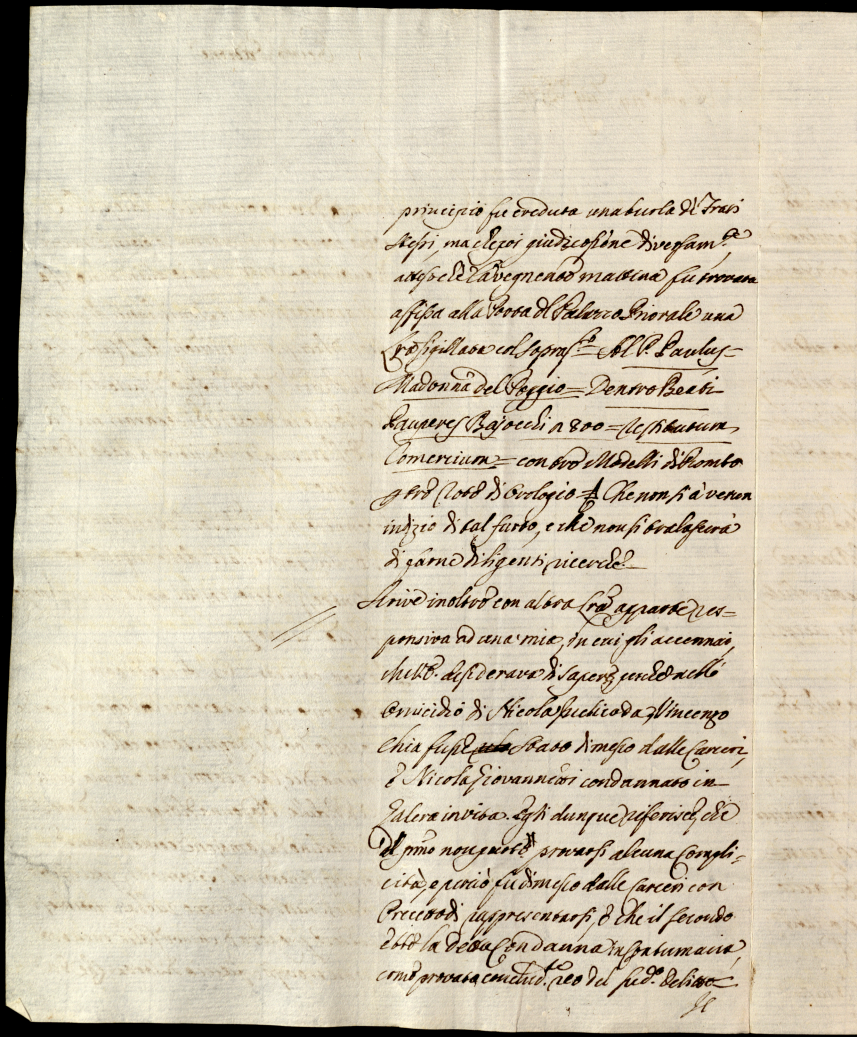 principio fu creduta una burla di Frati
stessi, ma depoi giudicossene diversam.te
atteso che la vegnente mattina fu trovata
affissa alla Porta del Palazzo Priorale una
Lra sigillata col sopras.to = Al P. Paulus =
Madonna del Poggio = Dentro Beati
Pauperes Bajocchi n 800 = restitutum
Comercium = con tre Modelli di Piombo
di Orologio = Che non si à verun
indizio di tal furto, e che non si tralascerà
di farne diligenti ricerche.
Scrive inoltre con altra Lra apparte res=
ponsiva ad una mia, in cui gli accennai,
che desiderava di sapere perche nello
Omicidio di Nicola da Vincenzo
Chia fusse stato dimesso dalle Carceri,
e Nicola Giovannetti condannato in
Galera in vita. Egli dunque riferisce, che
del primo non potè provarsi alcuna Compli=
cità, e perciò fu dimesso dalle Carceri con
Precetto di rappresentarsi, e che il secondo
la detta Condanna in Contumacia
come provato reo del sud.o delitto
Il